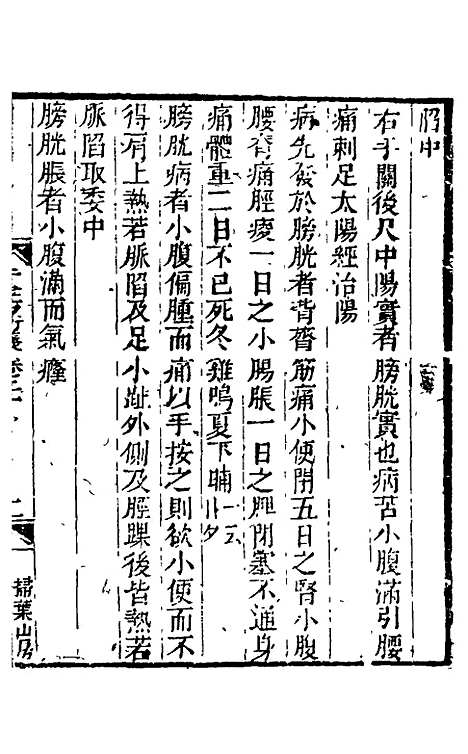 胞中
右手關後尺中陽實者膀胱實也病苦小腹滿引腰
痛刺足太陽經治陽
病先發於膀胱者背膂筋痛小便閉五日之腎小腹
腰脊痛脛痠一日之小腸脹一日之脾閉塞不通身
痛體重二日不已死冬雞鳴夏下晡一云日夕
膀胱病者小腹偏腫而痛以手按之則欲小便而不
得肩上熱若脈陷及足小趾外側及脛踝後皆熱若
脈陷取委中
膀胱脹者小腹滿而氣癃
掃葉山房